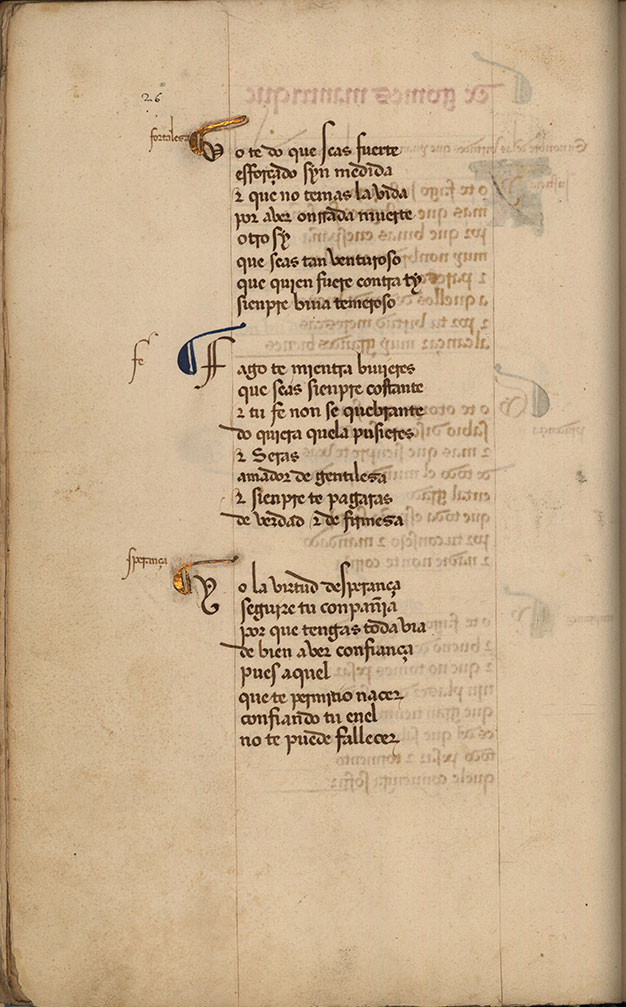 26
fortalesa
Yo te do que seas fuerte
efforçado syn medida
τ que no temas la vida
por aver onrrada muerte
otro sy
que seas tan venturoso
que quien fuere contra ty
sienpre biua temeroso
fe
Fago te mientra biuieres
que seas sienpre costante
τ tu fe non se quebrante
do quiera quela pusieres
τ Seras
amador de gentilesa
τ sienpre te pagaras
de verdad τ de firmesa
sperança
Yo la virtud desperança
seguire tu conpañia
por que tengas toda via
de bien aver confiança
pues aquel
que te permitio nacer
confiando tu enel
no te puede fallecer